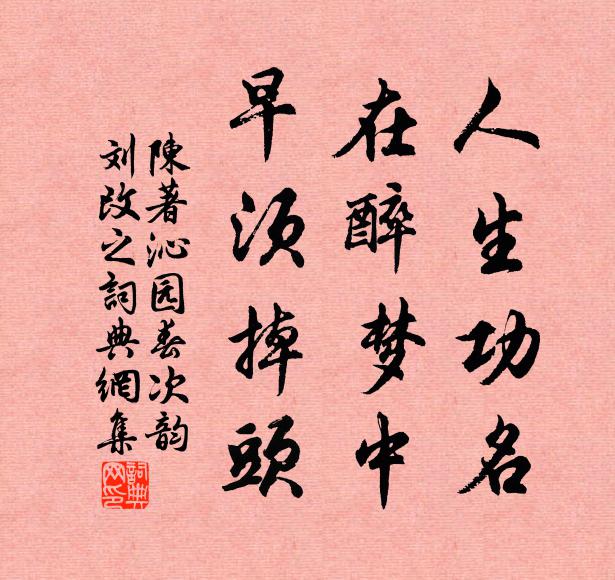 人生功名
在醉梦中
早须掉頭
陳著沁园春次韵
刘改之詞典網集
詞典网印